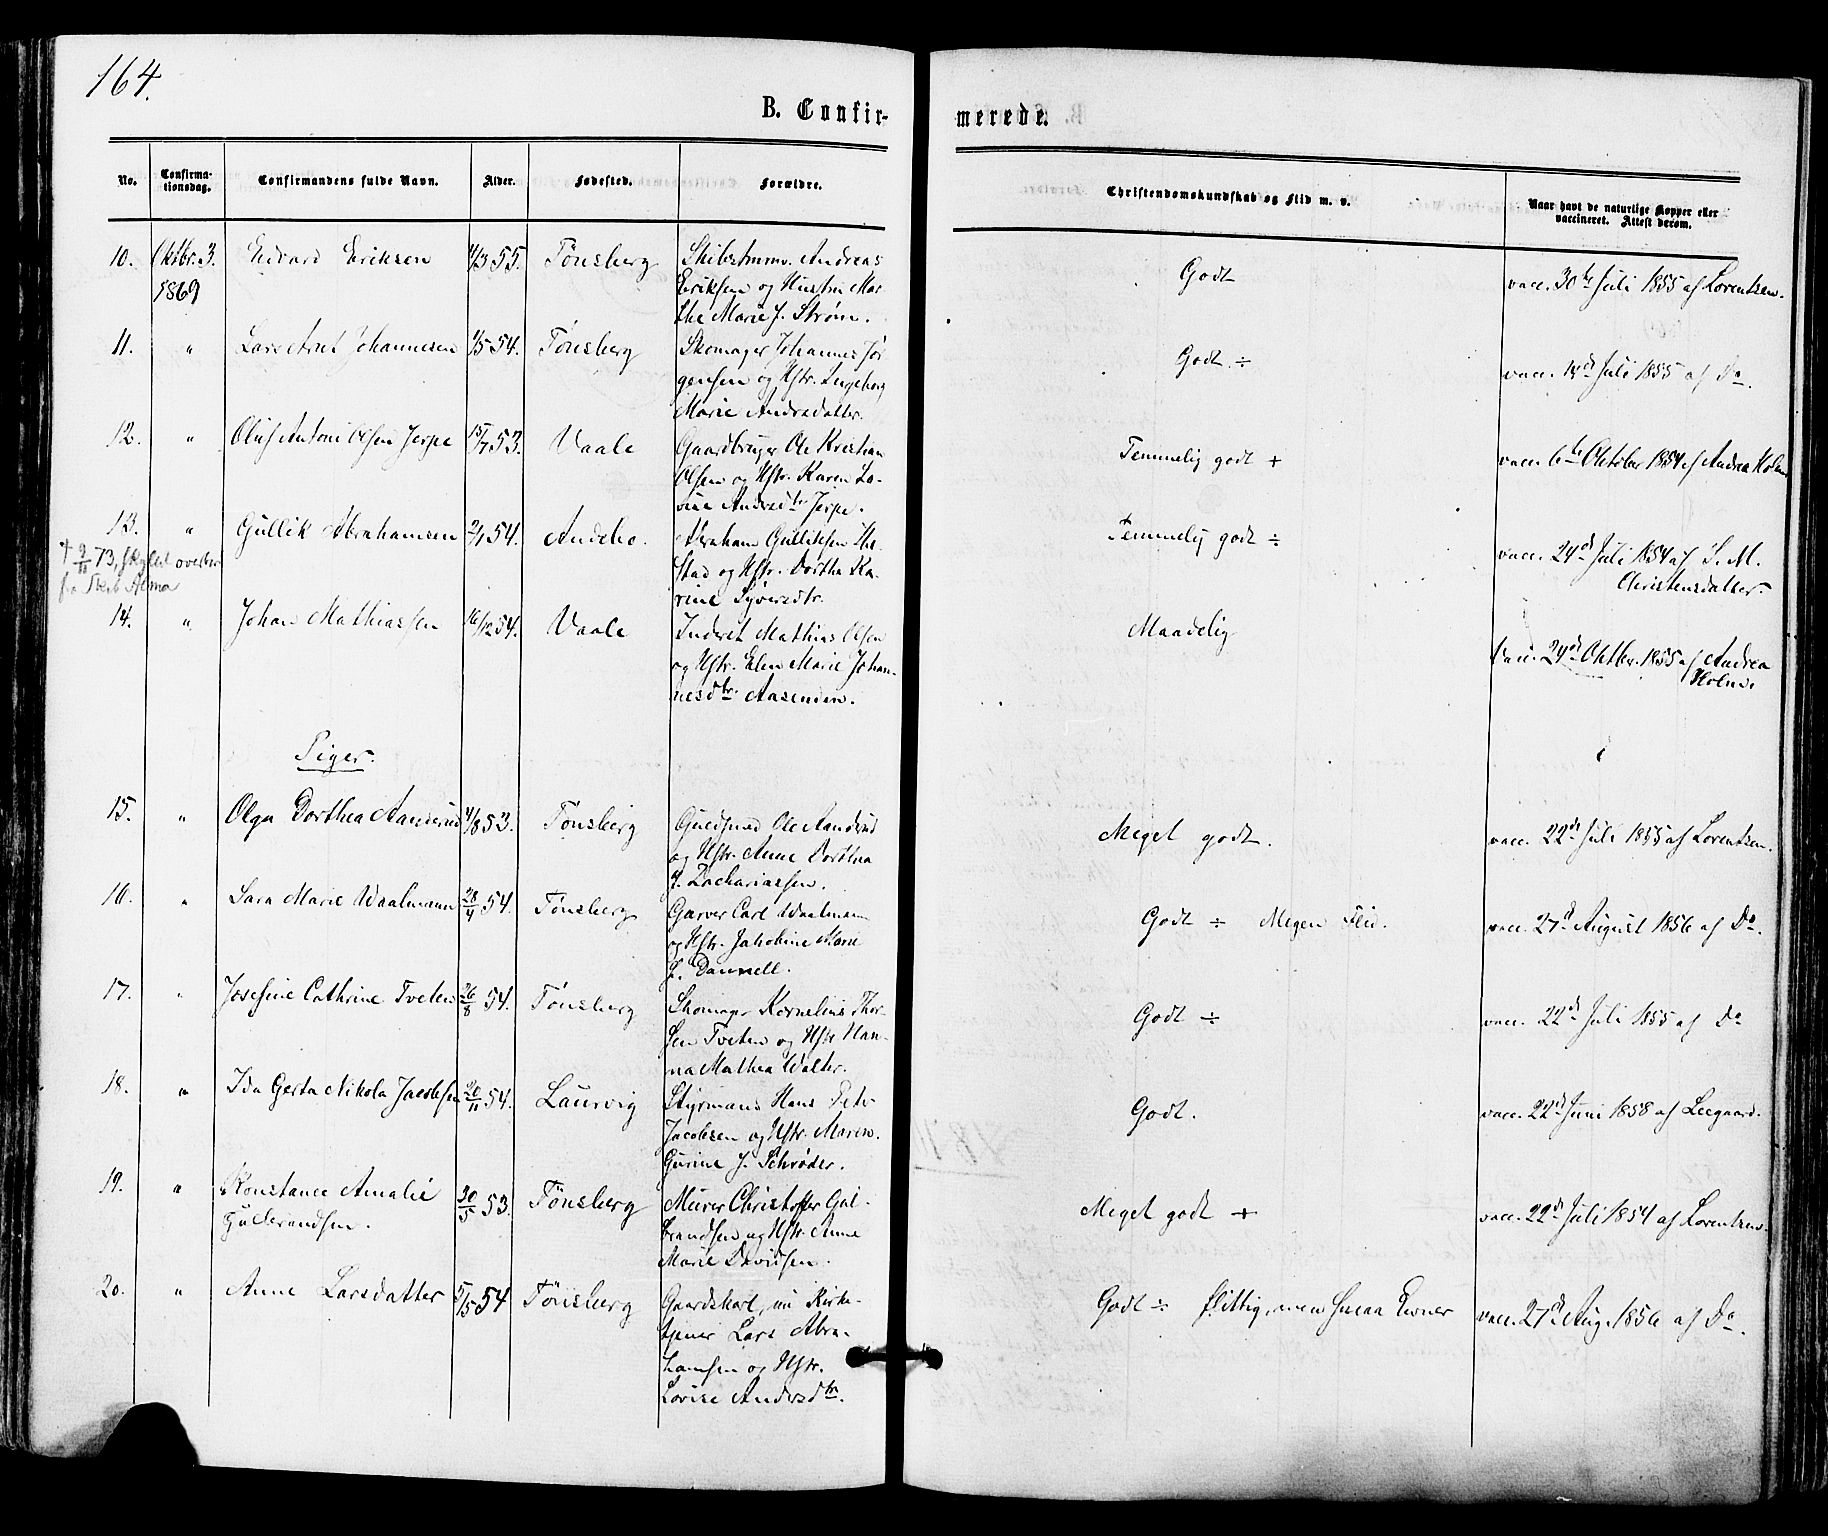 164.
B. Confir-
merede.
No.
Confirma-
tionsdag.
Confirmandens fulde Navn.
Alder.
Fødested.
Forældre.
Christendomskundskab og Flid m. v.
Naar havt de naturlige Kopper eller
vaccineret. Attest derom.
10. Oktbr. 3. Edvard Eriksen 4/3 55. Tønsberg Skibstmmr. Andreas Godt vacc. 30te Juli 1855 af Lorentzen.
1869 Eriksen og Hustru Mar-
the Marie f. Strøm.
11. " Lars Arnt Johannesen 1/5 54. Tønsberg Skomager Johannes Jør- Godt ÷ vacc. Juli 1855 af Do.
gensen og Hstr. Ingeborg
Marie Andersdatter.
12. " Oluf Antoni Olsen Jerpe 15/7 53. Vaale Gaardbruger Ole Kristian Temmelig godt + vacc. 6te Oktober 1854 af Andrea Holm
Olsen og Hstr. Karen Lo-
vise Andersdtr. Jerpe.
13. " Gullik Abrahamsen 2/1 54. Andebo. Abraham Gulliksen Temmelig godt ÷ vacc. 24de Juli 1854 af S. M.
† 9/11 73, skyllet overbord
stad og Hstr. Dorthe Ka- Christensdatter.
fra Skib Alma
rine Syversdtr.
14. " Johan Mathiassen 16/12 54. Vaale Inderst Mathias Olsen Maadelig vacc. 24de Oktbr. 1855 af Andrea
og Hstr. Elen Marie Johan- Holm.
nesdtr. Aasenden.
Piger.
15. " Olga Dorthea Aanderud 4/8 53. Tønsberg Guldsmed Ole Aanderud Meget godt. vacc. 22de Juli 1855 af Lorentzen.
og Hstr. Anne Dorthea
f. Zachariassen.
16. " Sara Marie Waalmann 28/4 54. Tønsberg Garver Carl Waalmann Godt ÷ Megen Flid. vacc. 27de August 1856 af Do.
og Hstr. Jakobine Marie
f. Dannell.
17. " Josefine Cathrine Tveten 26/8 54. Tønsberg Skomager Kornelius Thor- Godt ÷ vacc. 22de Juli 1855 af Do
sen Tveten og Hstr. Han-
na Mathea Walter.
18. " Ida Gerta Nikola Jacobsen 20/11 54. Laurvig Styrmand Hans Petr. Godt. vacc. 22de Juni 1858 af Leegaard.
Jacobsen og Hstr. Maren
Gurine f. Schrøder.
19. " Konstance Amalie 30/5 53. Tønsberg Murer Christoffer Gul- Meget godt + vacc. 22de Juli 1854 af Lorentzen.
Gulbrandsen. brandsen og Hstr. Anne
Marie Davidsen.
20. " Anne Larsdatter 5/5 54 Tønsberg Gaardskarl, nu Kirke- Godt ÷ flittig, men smaa Evner vacc. 27de Aug. 1856 af Do.
tjener Lars Abra-
hamsen og Hstr.
Lovise Andersdtr.